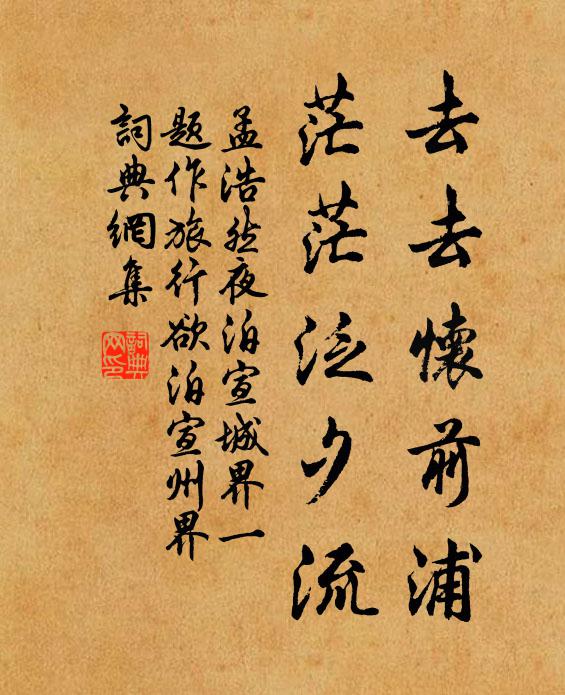 去去懷前浦
茫茫泛夕流
孟浩然夜泊宣城界一
题作旅行欲泊宣州界
詞典網集
詞典網印